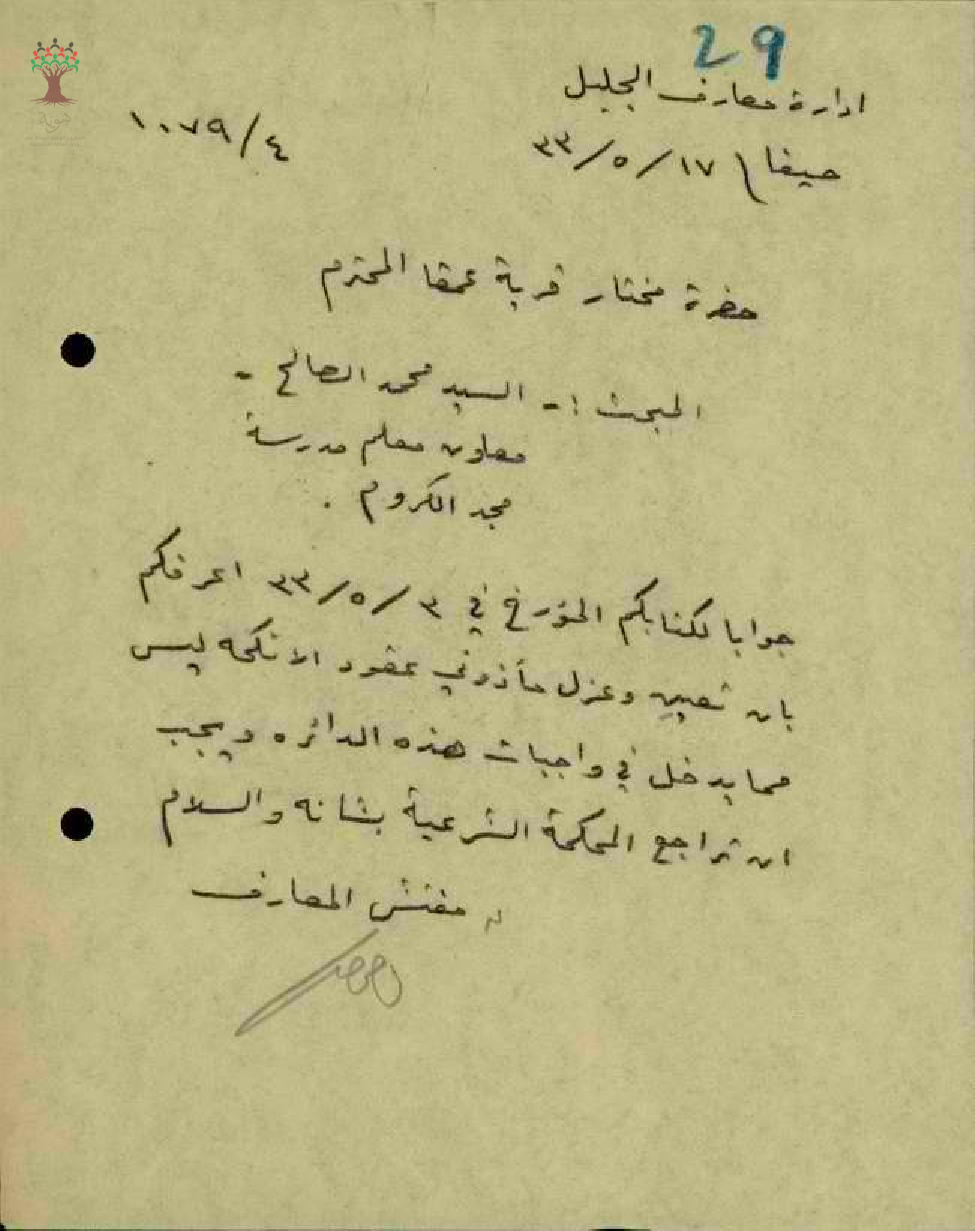 29
ادارة معارف الجليل
حيفا / ١٧ / ٥ / ٣٣
١٠٧٩ / ٤
حضرة مختار قرية عمقا المحترم
المبحث :- السيد محمد الصالح -
معاون معلم مدرسة
مجد الكروم .
جوابا لكتابكم المؤرخ في ٣ / ٥ / ٣٣ اعرفكم
بان تعيين وعزل مأذوني عقود الانكحه ليس
مما يدخل في واجبات هذه الدائره ويجب
ان تراجع المحكمة الشرعية بشانه والسلام
مفتش المعارف